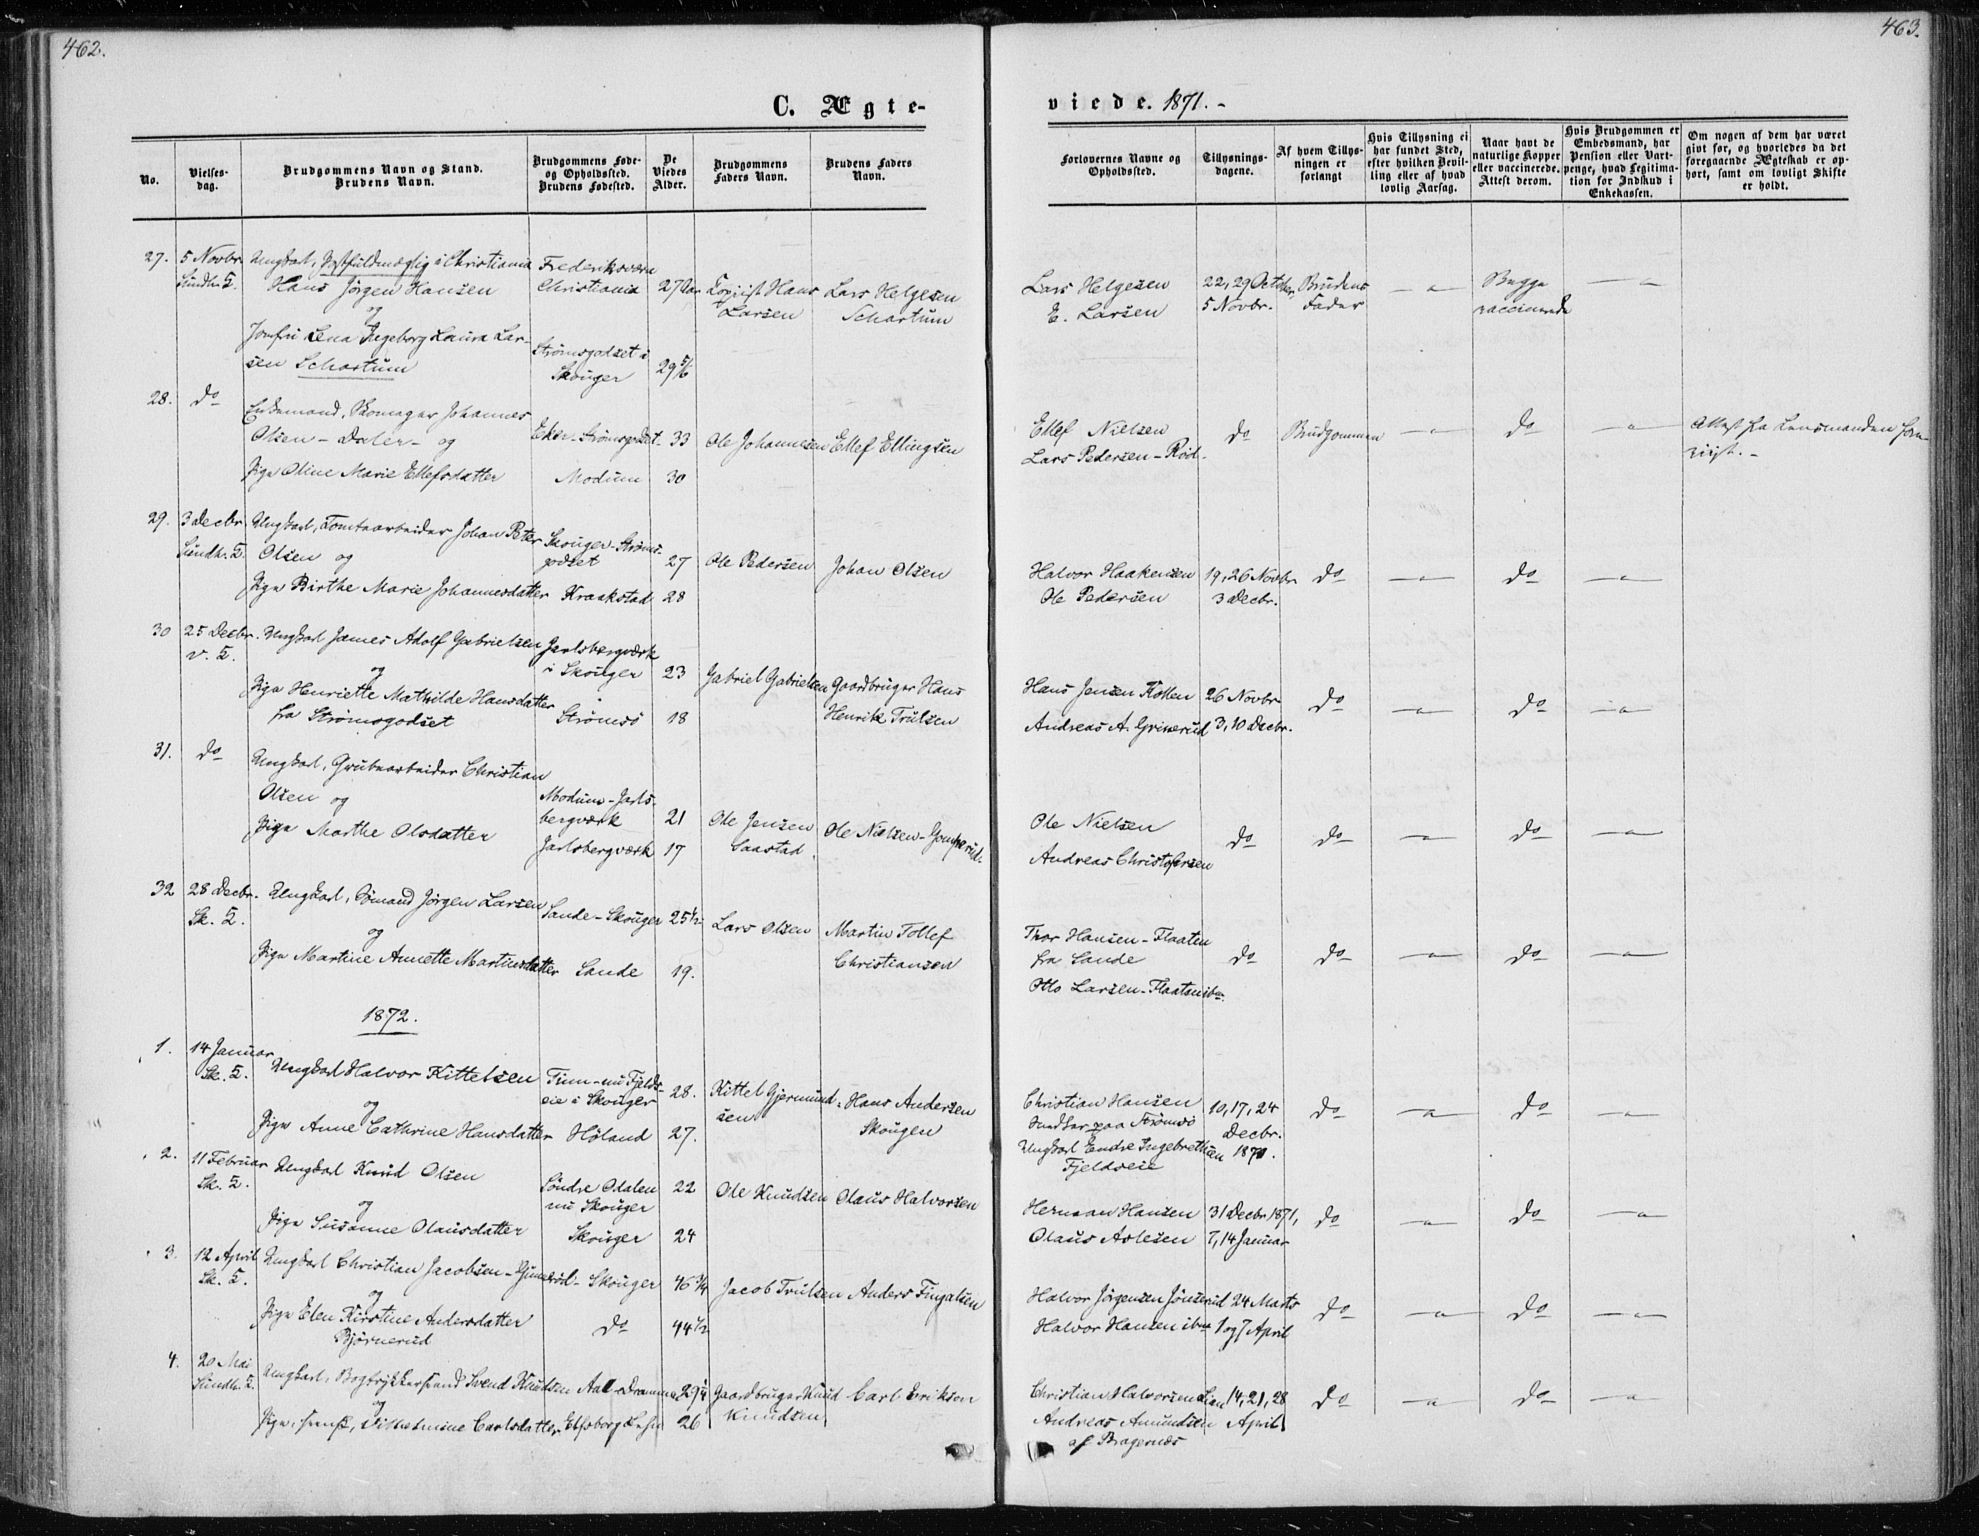 462.
463.
C. Ægte-
viede. 1871.-
No.
Vielses-
dag.
Brudgommens Navn og Stand.
Brudens Navn.
Brudgommens Føde-
og Opholdssted.
Brudens Fødested.
De
Viedes
Alder.
Brudgommens
Faders Navn.
Brudens Faders
Navn.
Forlovernes Navne og
Opholdssted.
Tillysnings-
dagene.
Af hvem Tillys-
ningen er
forlangt
Hvis Tillysning ei
har fundet Sted,
efter hvilken Bevil-
ling eller af hvad
lovlig Aarsag.
Naar havt de
naturlige Kopper
eller vaccinerede.
Attest derom.
Hvis Brudgommen er
Embedsmand, har
Pension eller Vart-
penge, hvad Legitima-
tion for Indskud i
Enkekassen.
Om nogen af dem har været
givt før, og hvorledes da det
foregaaende Ægteskab er op-
hørt, samt om lovligt Skifte
er holdt.
27. 5 Novbr. Ungkarl, Postfuldmægtig i Christiania Frederiksværn
Hans Jörgen Hansen Christiania 27 Aar Hans Lars Helgesen
og Larsen Schartum
Jomfru Lena Ingeborg Laura Lar- Strömsgodset i
sen Schartum Skouger 29 5/6
Lars Helgesen 22, 29 October, Brudens - " - Begge - " -
E. Larsen 5 Novbr. Fader vaccinerede
28. do Enkemand, Skomager Johannes
Olsen - Daler - og Eker - Strömsgodset 33 Ole Johannesen Ellef Ellingsen
Pige Oline Marie Ellefsdatter Modum 30
Ellef Nielsen do Brudgommen - " - do - " - Attest fra Lensmanden fore-
Lars Pedersen - Röd. vüst. -
29. 3 Decbr. Ungkarl, Tomtearbeider Johan Peter Skouger - Ströms-
Olsen og godset 27 Ole Pedersen Johan Olsen
Pige Birthe Marie Johannesdatter Kraakstad 28
Halvor Haakensen 19, 26 Novbr do - " - do - " -
Ole Pedersen 3 Decbr.
30 25 Decbr. Ungkarl James Adolf Gabrielsen Jarlsbergværk
og i Skouger 23 Gabriel Gabrielsen Gaardbruger Hans
Pige Henriette Mathilde Hansdatter Henrik Trulsen
fra Strömsgodset Strömsö 18
Hans Jensen Kollen 26 Novbr do - " - do - " -
Andreas A. Grinerud 3, 10 Decbr.
31. do Ungkarl, Grubearbeider Christian
Olsen og Modum - Jarls-
bergværk 21 Ole Jensen Ole Nielsen - Gomperud.
Pige Marthe Olsdatter Jarlsbergværk 17 Saastad.
Ole Nielsen do do - " - do - " -
Andreas Christofersen
32 28 Decbr. Ungkarl, Sömand Jörgen Larsen Sande - Skouger 25 1/2 Lars Olsen Martin Tollef
Sk. K. og Christiansen
Pige Martine Annette Martinsdatter Sande 19.
Thor Hansen - Flaaten
fra Sande do do - " - do - " -
Otto Larsen - Flaaten ibm.
1872.
1. 14 Januar Ungkarl Halvor Kittelsen Tinn - nu Fjelds- 28. Kittel Gjermund- Hans Andersen
Sk. K. og eie i Skouger sen Skougen
Pige Anne Cathrine Hansdatter Höland 27.
Christian Hansen 10, 17, 24 do - " - do - " -
paa Strömsö Decbr.
Ungkarl Endre Ingebrethsen 1871.
Fjeldseie
2. 11 Februar Ungkarl Knud Olsen Söndre Odalen 22 Ole Knudsen Olaus Halvorsen
Sk. K. og nu Skouger
Pige Susanne Olausdatter Skouger 24
Herman Hansen 31 Decbr 1871, do - " - do - " -
Olaus Aslesen 7, 14 Januar
3. 12 April Ungkarl Christian Jacobsen - Skouger 46 3/4 Jacob Trulsen Anders Fingalsen
Sk. K. og
Pige Elen Kirstine Andersdatter do 44 1/2
Björnerud
Halvor Jörgensen Jönserud 24 Marts do - " - do - " -
Halvor Hansen ibm 1 og 7 April
4. 20 Mai Ungkarl, Bogtrykkersvend Svend Knudsen Aal - Drammen 29 1/4 Gaardbruger Knud Carl Erikson
og Knudsen
Pige, svensk, Vilhelmine Carlsdatter Elfsborg Lehn 26
Christian Halvorsen Lian 14, 21, 28 do - " - do - " -
Andreas Amundsen April
af Bragernæs